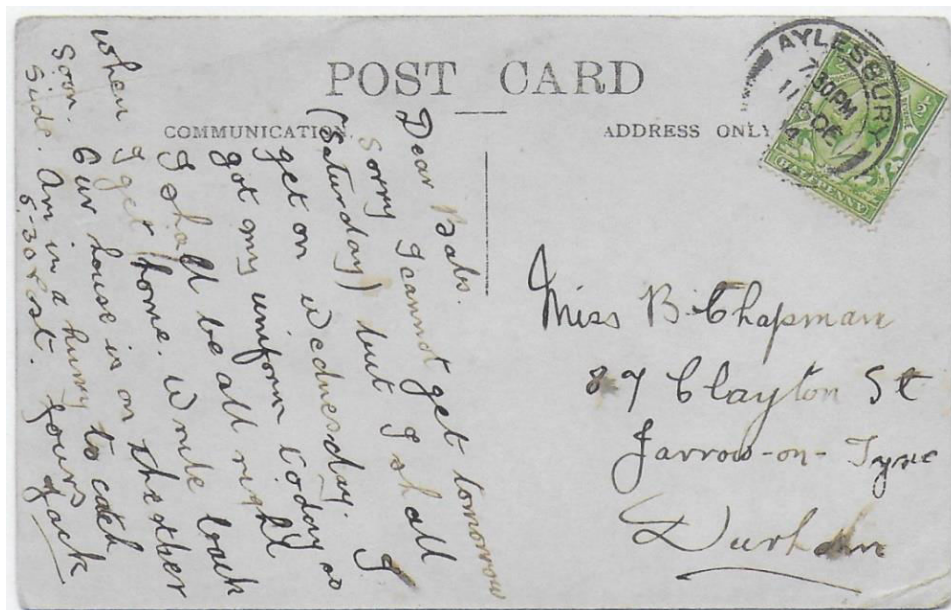 POST CARD
COMMUNICATION.
ADDRESS ONLY
AYLESBURY
7.30PM
11 DE
14
HALFPENNY
Dear Babs.
Sorry I cannot get tomorrow
(Saturday) but I shall
get on Wednesday. I
got my uniform today so
I shall be all right
when I get home. Write back
soon. Our house is on the other
side. Am in a hurry to catch
5-30 post. Yours Jack
Miss B. Chapman
87 Clayton St
Jarrow-on-Tyne
Durham